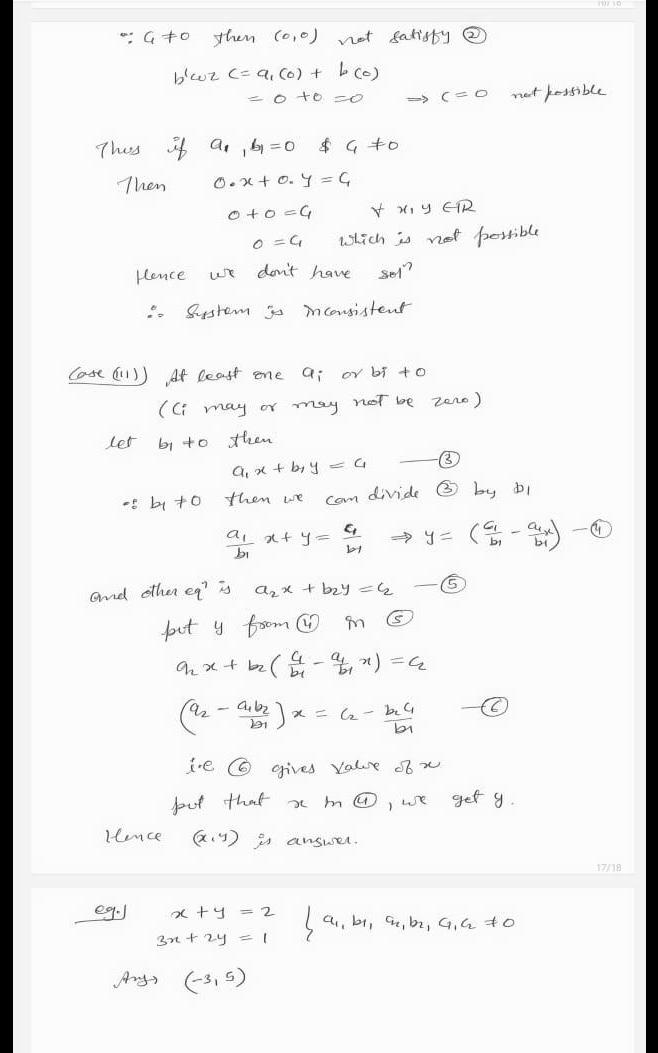 ∵ C₁ ≠ 0 then (0,0) not satisfy ②
b'coz C = a₁(0) + b(0)
= 0 + 0 = 0 ⇒ C = 0 not possible
Thus if a₁, b₁ = 0 & C₁ ≠ 0
Then 0·x + 0·y = C₁
0 + 0 = C₁ ∀ x, y ∈ ℝ
0 = C₁ which is not possible
Hence we don't have solⁿ
∴ System is inconsistent
Case (iii)) At least one ai or bi ≠ 0
(Ci may or may not be zero)
let b₁ ≠ 0 then
a₁x + b₁y = C₁ —③
∵ b₁ ≠ 0 then we can divide ③ by b₁
a₁/b₁ x + y = C₁/b₁ ⇒ y = (C₁/b₁ - a₁x/b₁) —④
and other eqⁿ is a₂x + b₂y = C₂ —⑤
put y from ④ in ⑤
a₂x + b₂(C₁/b₁ - a₁/b₁ x) = C₂
(a₂ - a₁b₂/b₁)x = C₂ - b₂C₁/b₁ —⑥
i.e ⑥ gives value of x
put that x in ④, we get y.
Hence (x,y) is answer.
17/18
eg.) x + y = 2
3x + 2y = 1 } a₁, b₁, a₂, b₂, C₁, C₂ ≠ 0
Ans→ (-3, 5)